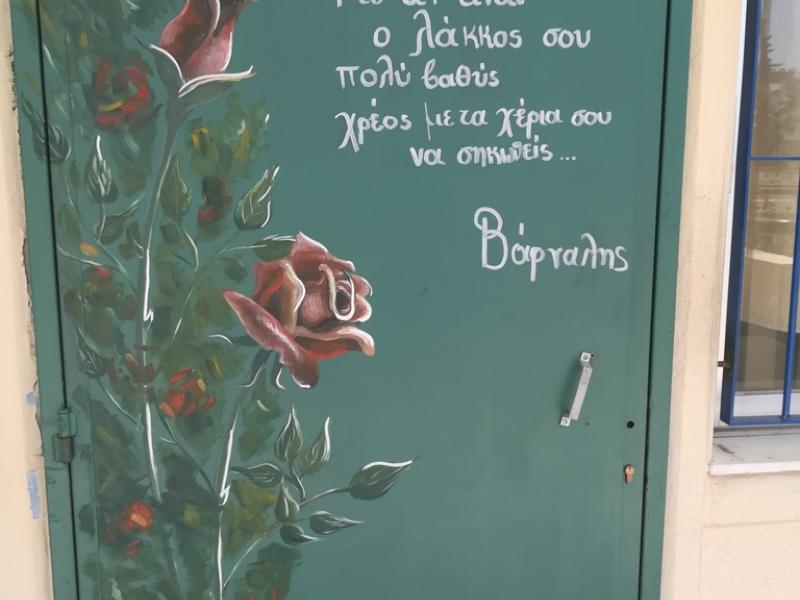 ο λάκκος σου
πολύ βαθύς
χρέος με τα χέρια σου
να σηκωθείς...
Βάρναλης